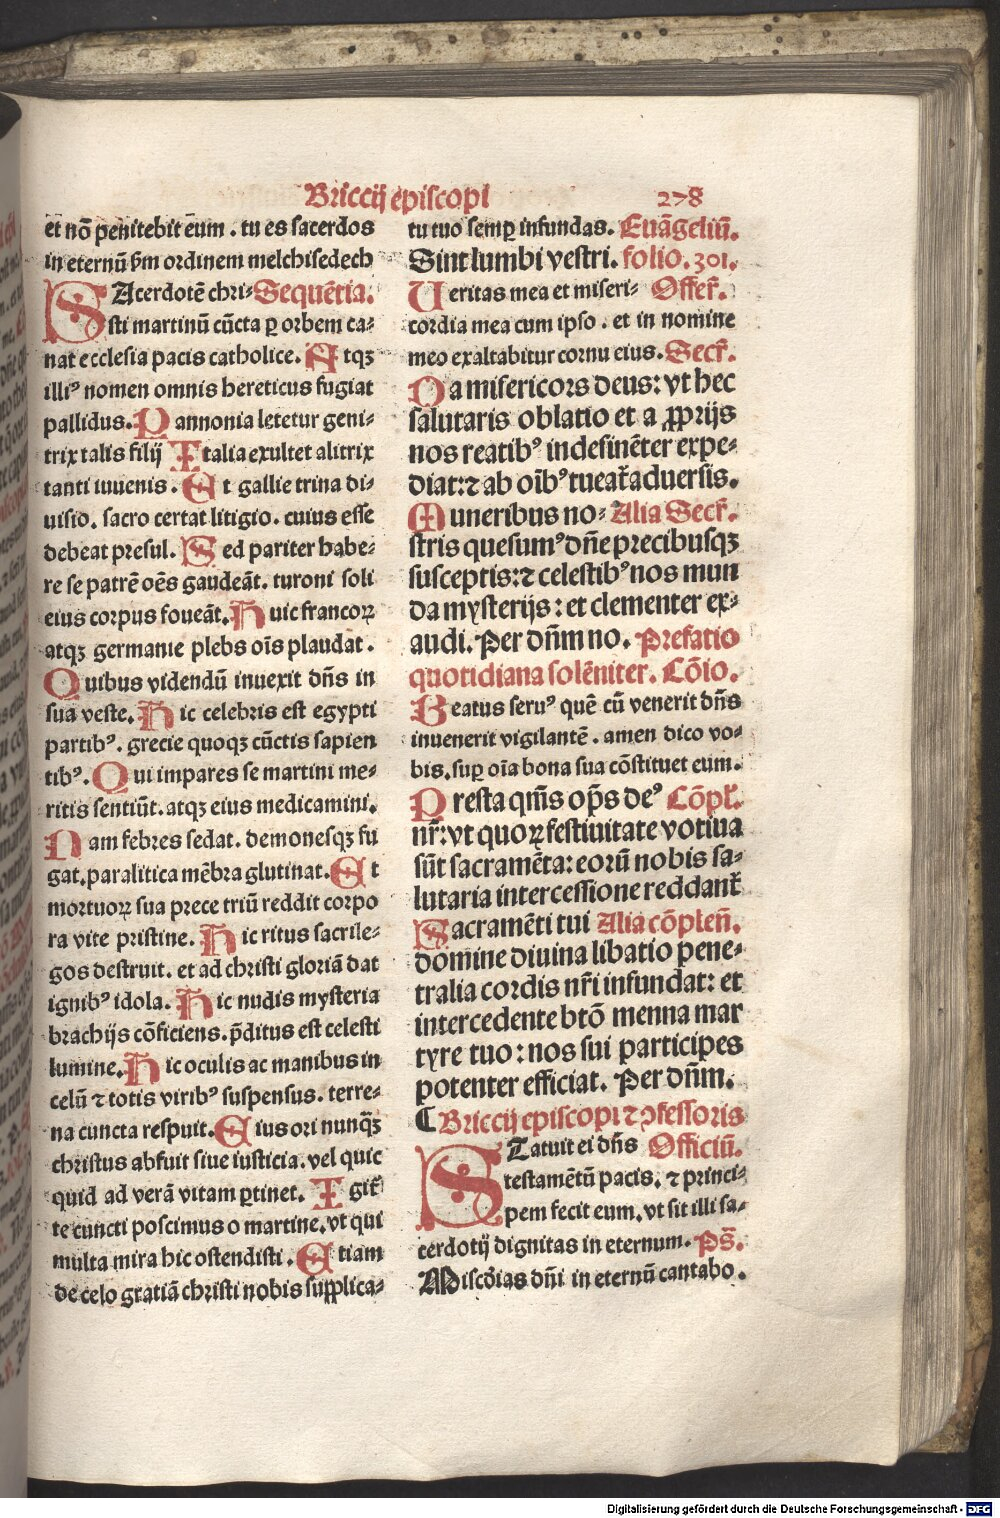 Briccij episcopi 278
et nō penitebit eum . tu es sacerdos
in eternū ẜm ordinem melchisedech
SAcerdotē chri- Sequētia.
sti martinū cūcta ꝑ orbem ca-
nat ecclesia pacis catholice. Atqꝫ
illiꝰ nomen omnis hereticus fugiat
pallidus. Pannonia letetur geni-
trix talis filij Italia exultet alitrix
tanti iuuenis. Et gallie trina di-
uisio. sacro certat litigio. cuius esse
debeat presul. Sed pariter habe-
re se patrē oēs gaudeāt. turoni soli
eius corpus foueāt. Huic francoꝝ
atqꝫ germanie plebs oīs plaudat.
Quibus videndū inuexit dn̄s in
sua veste. Hic celebris est egypti
partibꝰ. grecie quoqꝫ cūctis sapien
tibꝰ. Qui impares se martini me-
ritis sentiūt. atqꝫ eius medicamini.
Nam febres sedat. demonesqꝫ fu
gat. paralitica mēbra glutinat. Et
mortuoꝝ sua prece triū reddit corpo
ra vite pristine. Hic ritus sacrile-
gos destruit. et ad christi gloriā dat
ignibꝰ idola. Hic nudis mysteria
brachijs cōficiens. p̄ditus est celesti
lumine. Hic oculis ac manibus in
celū ⁊ totis viribꝰ suspensus. terre-
na cuncta respuit. Eius ori nunq̄ꝫ
christus abfuit siue iusticia. vel quic
quid ad verā vitam ꝑtinet. Igit᷑
te cuncti poscimus o martine. vt qui
multa mira hic ostendisti. Etiam
de celo gratiā christi nobis supplica-
tu tuo semꝑ infundas. Euāgeliū.
Sint lumbi vestri. folio. 301.
Ueritas mea et miseri- Offer̄.
cordia mea cum ipso . et in nomine
meo exaltabitur cornu eius. Secr̄.
Da misericors deus: vt hec
salutaris oblatio et a ꝓprijs
nos reatibꝰ indesinēter expe-
diat: ⁊ ab oībꝰ tueat᷑ aduersis.
Muneribus no- Alia Secr̄.
stris quesumꝰ dn̄e precibusqꝫ
susceptis: ⁊ celestibꝰ nos mun
da mysterijs: et clementer ex-
audi. Per dn̄m no. Prefatio
quotidiana solēniter. Cōio.
Beatus seruꝰ quē cū venerit dn̄s
inuenerit vigilantē . amen dico vo-
bis. suꝑ oīa bona sua cōstituet eum.
Presta qm̄s op̄s deꝰ Cōpl̄.
nr̄: vt quoꝝ festiuitate votiua
sūt sacramēta: eorū nobis sa-
lutaria intercessione reddant᷑
Sacramēti tui Alia cōplen̄.
domine diuina libatio pene-
tralia cordis nr̄i infundat: et
intercedente btō menna mar
tyre tuo: nos sui participes
potenter efficiat. Per dn̄m.
¶ Briccij episcopi ⁊ ꝯfessoris
STatuit ei dn̄s Officiū.
testamētū pacis. ⁊ princi-
pem fecit eum. vt sit illi sa-
cerdotij dignitas in eternum. Ps̄.
Miscd̄ias dn̄i in eternū cantabo.
Digitalisierung gefördert durch die Deutsche Forschungsgemeinschaft - DFG